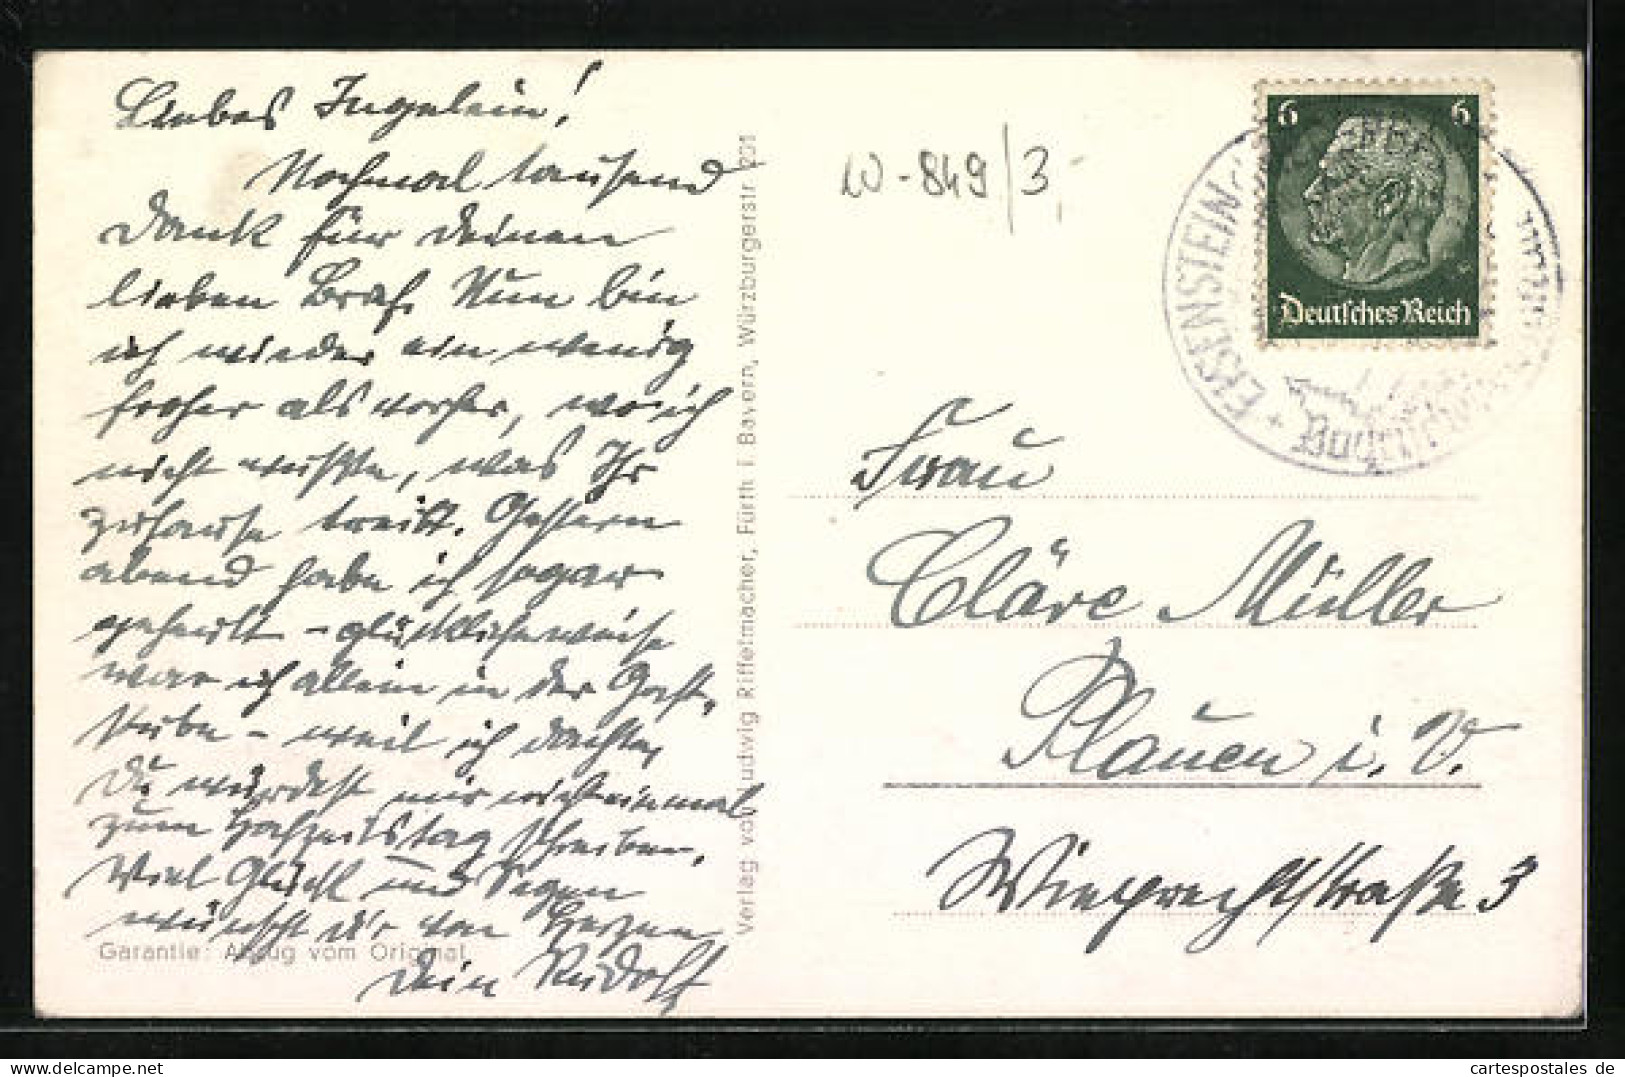 Liebes Ingelein!
Nochmal tausend
Dank für Deinen
lieben Brief. Nun bin
ich wieder ein wenig
froher als vorher, wo ich
nicht wußte, was Ihr
zuhause treibt. Gestern
abend habe ich sogar
geheult – glücklicherweise
war ich allein in der Gast-
stube – weil ich dachte,
Du würdest mir nicht einmal
zum Hochzeitstag schreiben.
Viel Glück und Segen
wünscht Dir von Herzen
Dein Rudolf
Garantie: Abzug vom Original
Verlag von Ludwig Riffelmacher, Fürth i. Bayern, Würzburgerstr. 201
W-849/3,-
6 6
Deutsches Reich
EISENSTEIN
Frau
Cläre Müller
Plauen i. V.
Wieprechtstraße 3
www.cartespostales.de